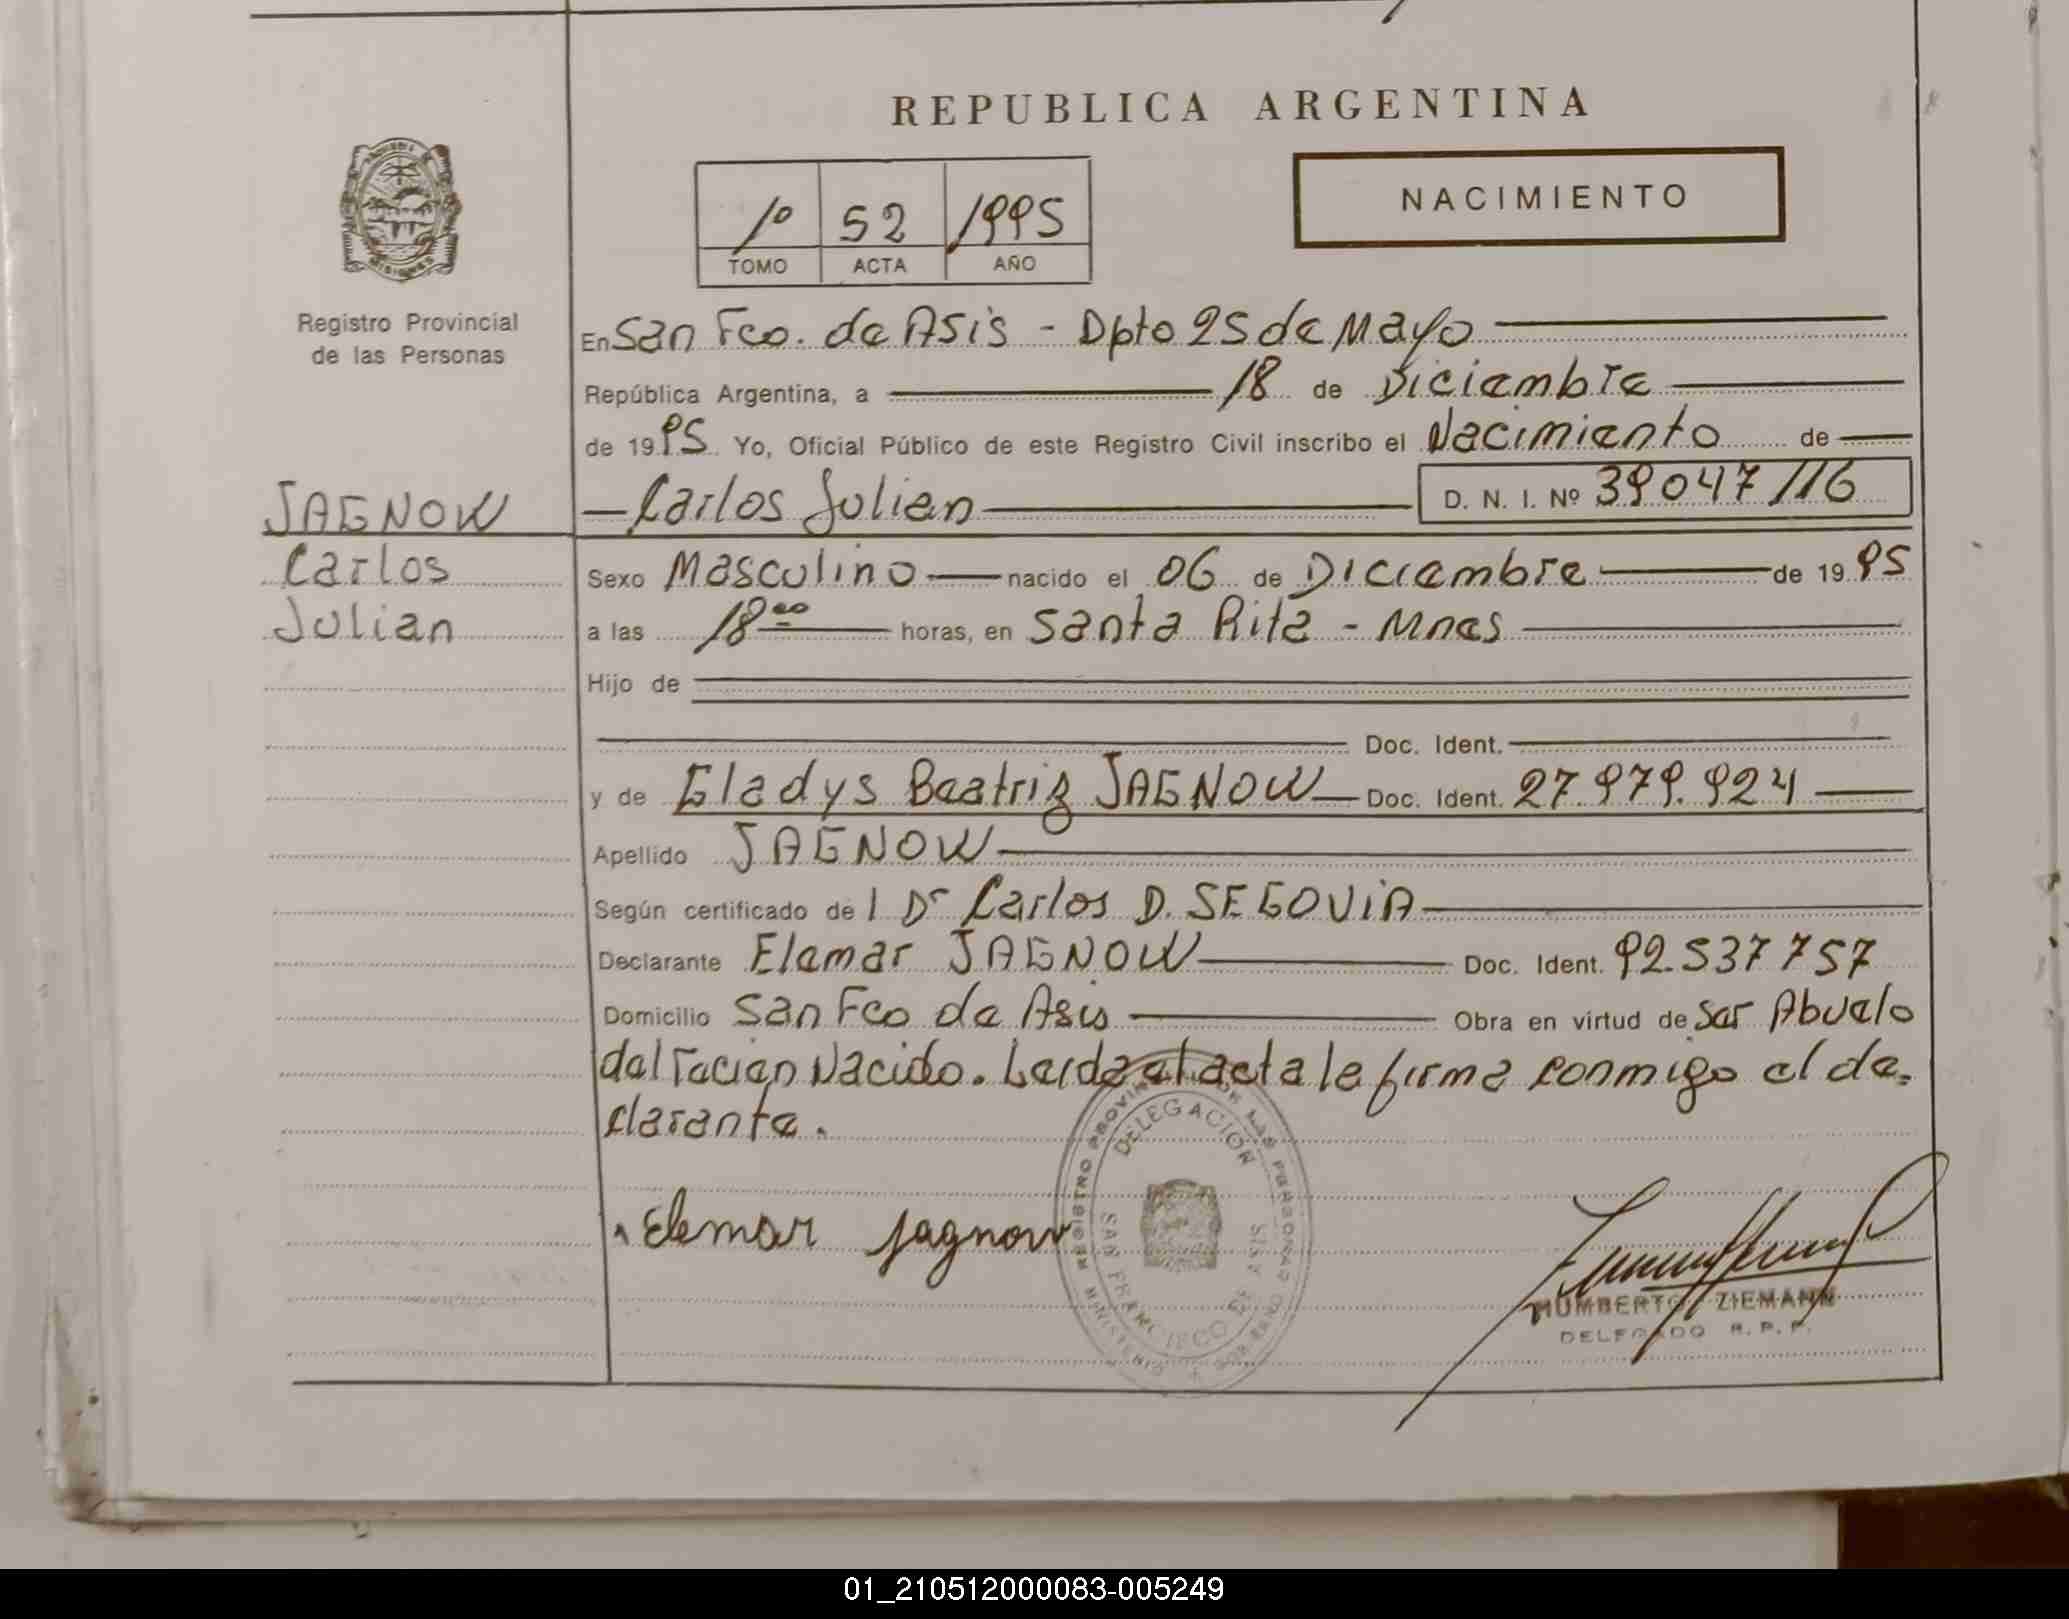 REPUBLICA ARGENTINA
NACIMIENTO
1º 52 1995
TOMO ACTA AÑO
MISIONES
Registro Provincial
de las Personas
JAGNOW
Carlos
Julian
En San Fco. de Asis - Dpto 25 de Mayo
República Argentina, a 18 de Diciembre
de 1995 Yo, Oficial Público de este Registro Civil inscribo el Nacimiento de
Carlos Julian D. N. I. Nº 39047116
Sexo Masculino nacido el 06 de Diciembre de 1995
a las 18 00 horas, en Santa Rita - Mnes
Hijo de
Doc. Ident.
y de Gladys Beatriz JAGNOW Doc. Ident. 27.979.924
Apellido JAGNOW
Según certificado de l Dr Carlos D. SEGOVIA
Declarante Elemar JAGNOW Doc. Ident. 92.537757
Domicilio San Fco de Asis Obra en virtud de ser Abuelo
del recien Nacido. Leida el acta la firma conmigo el de-
clarante.
Elemar Jagnow
REGISTRO PROVINCIAL DE LAS PERSONAS
DELEGACION
SAN FRANCISCO DE ASIS
MINISTERIO GOBIERNO
HUMBERTO ZIEMANN
DELEGADO R. P. P.
01_210512000083-005249